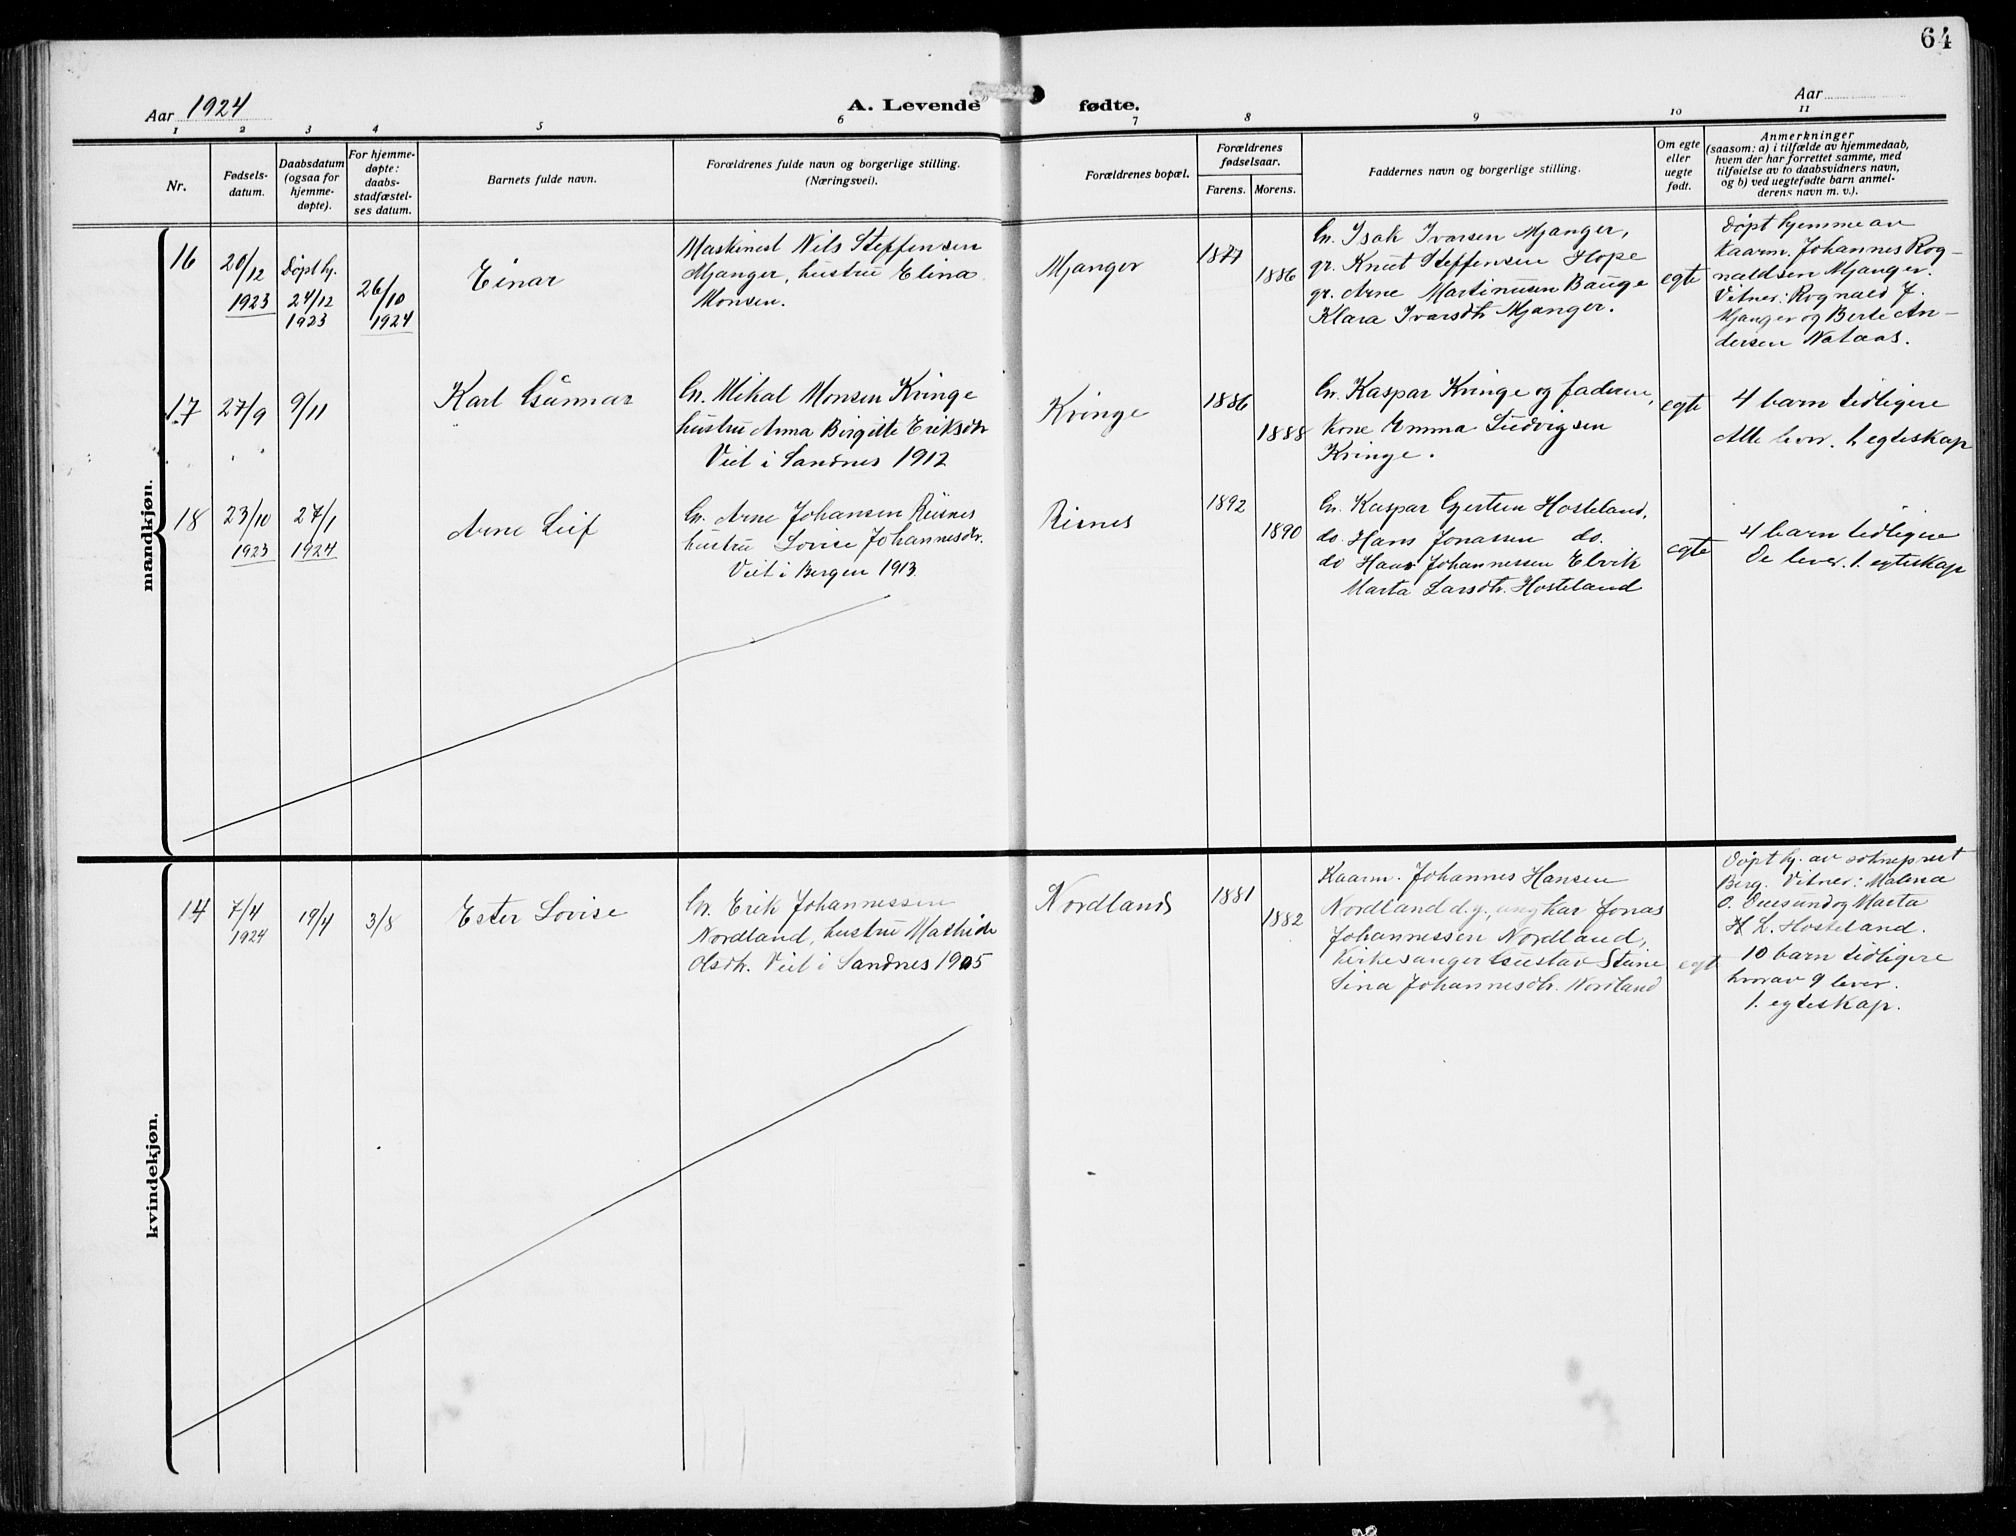 64
Aar 1924
A. Levende fødte.
Aar
1 2 3 4 5 6 7 8 9 10 11
Nr.
Fødsels-
datum.
Daabsdatum
(ogsaa for
hjemme-
døpte).
For hjemme-
døpte:
daabs-
stadfæstel-
ses datum.
Barnets fulde navn.
Forældrenes fulde navn og borgerlige stilling.
(Næringsvei).
Forældrenes bopæl.
Forældrenes
fødselsaar.
Farens. Morens.
Faddernes navn og borgerlige stilling.
Om egte
eller
uegte
født.
Anmerkninger
(saasom: a) i tilfælde av hjemmedaab,
hvem der har forrettet samme, med
tilføielse av to daabsvidners navn,
og b) ved uegtefødte barn anmel-
derens navn m. v.).
mandkjøn.
16
20/12
1923
Døpt hj.
24/12
1923
26/10
1924
Einar
Maskinest Nils Steffensen
Mjanger, hustru Elina
Monsen.
Mjanger
1877
1886
Gn. Isak Ivarsen Mjanger,
gr. Knut Steffensen Hope
gr. Arne Martinusen Bauge
Klara Ivarsdtr Mjanger.
egte
Døpt hjemme av
Kaarm. Johannes Rog-
naldsen Mjanger.
Vitner: Rognald J.
Mjanger og Berte An-
dersen Nataas.
17
27/9
9/11
Karl Gunnar
Gn. Mihal Monsen Kringe
hustru Anna Birgitte Eriksdtr
Viet i Sandnes 1912
Kringe
1886
1888
Gn. Kaspar Kringe og faderen,
kone Emma Ludvigsen
Kringe.
egte
4 barn tidligere
Alle lever. 1. egteskap
18
23/10
1923
27/1
1924
Arne Leif
Gn. Arne Johansen Risnes
hustru Lovise Johannesdtr.
Viet i Bergen 1913.
Risnes
1892
1890
Gn. Kaspar Gjertsen Hosteland,
do. Hans Jonassen do.
do Hans Johannessen Elvik
Marta Larsdtr. Hosteland
egte
4 barn tidligere
De lever. 1. egteskap
kvindekjøn.
14
7/4
1924
19/4
3/8
Ester Lovise
Gn. Erik Johannessen
Nordland, hustru Mathilde
Olsdtr. Viet i Sandnes 1905
Nordland
1881
1882
Kaarm. Johannes Hansen
Nordland d.y., ungkar Jonas
Johannessen Nordland,
Kirkesanger Gustav Steine
Sina Johannesdtr. Nordland
egte
Døpt hj. av sokneprest
Berg. Vitner: Malena
O. Duesund og Marta
H L. Hosteland.
10 barn tidligere
hvorav 9 lever.
1. egteskap.